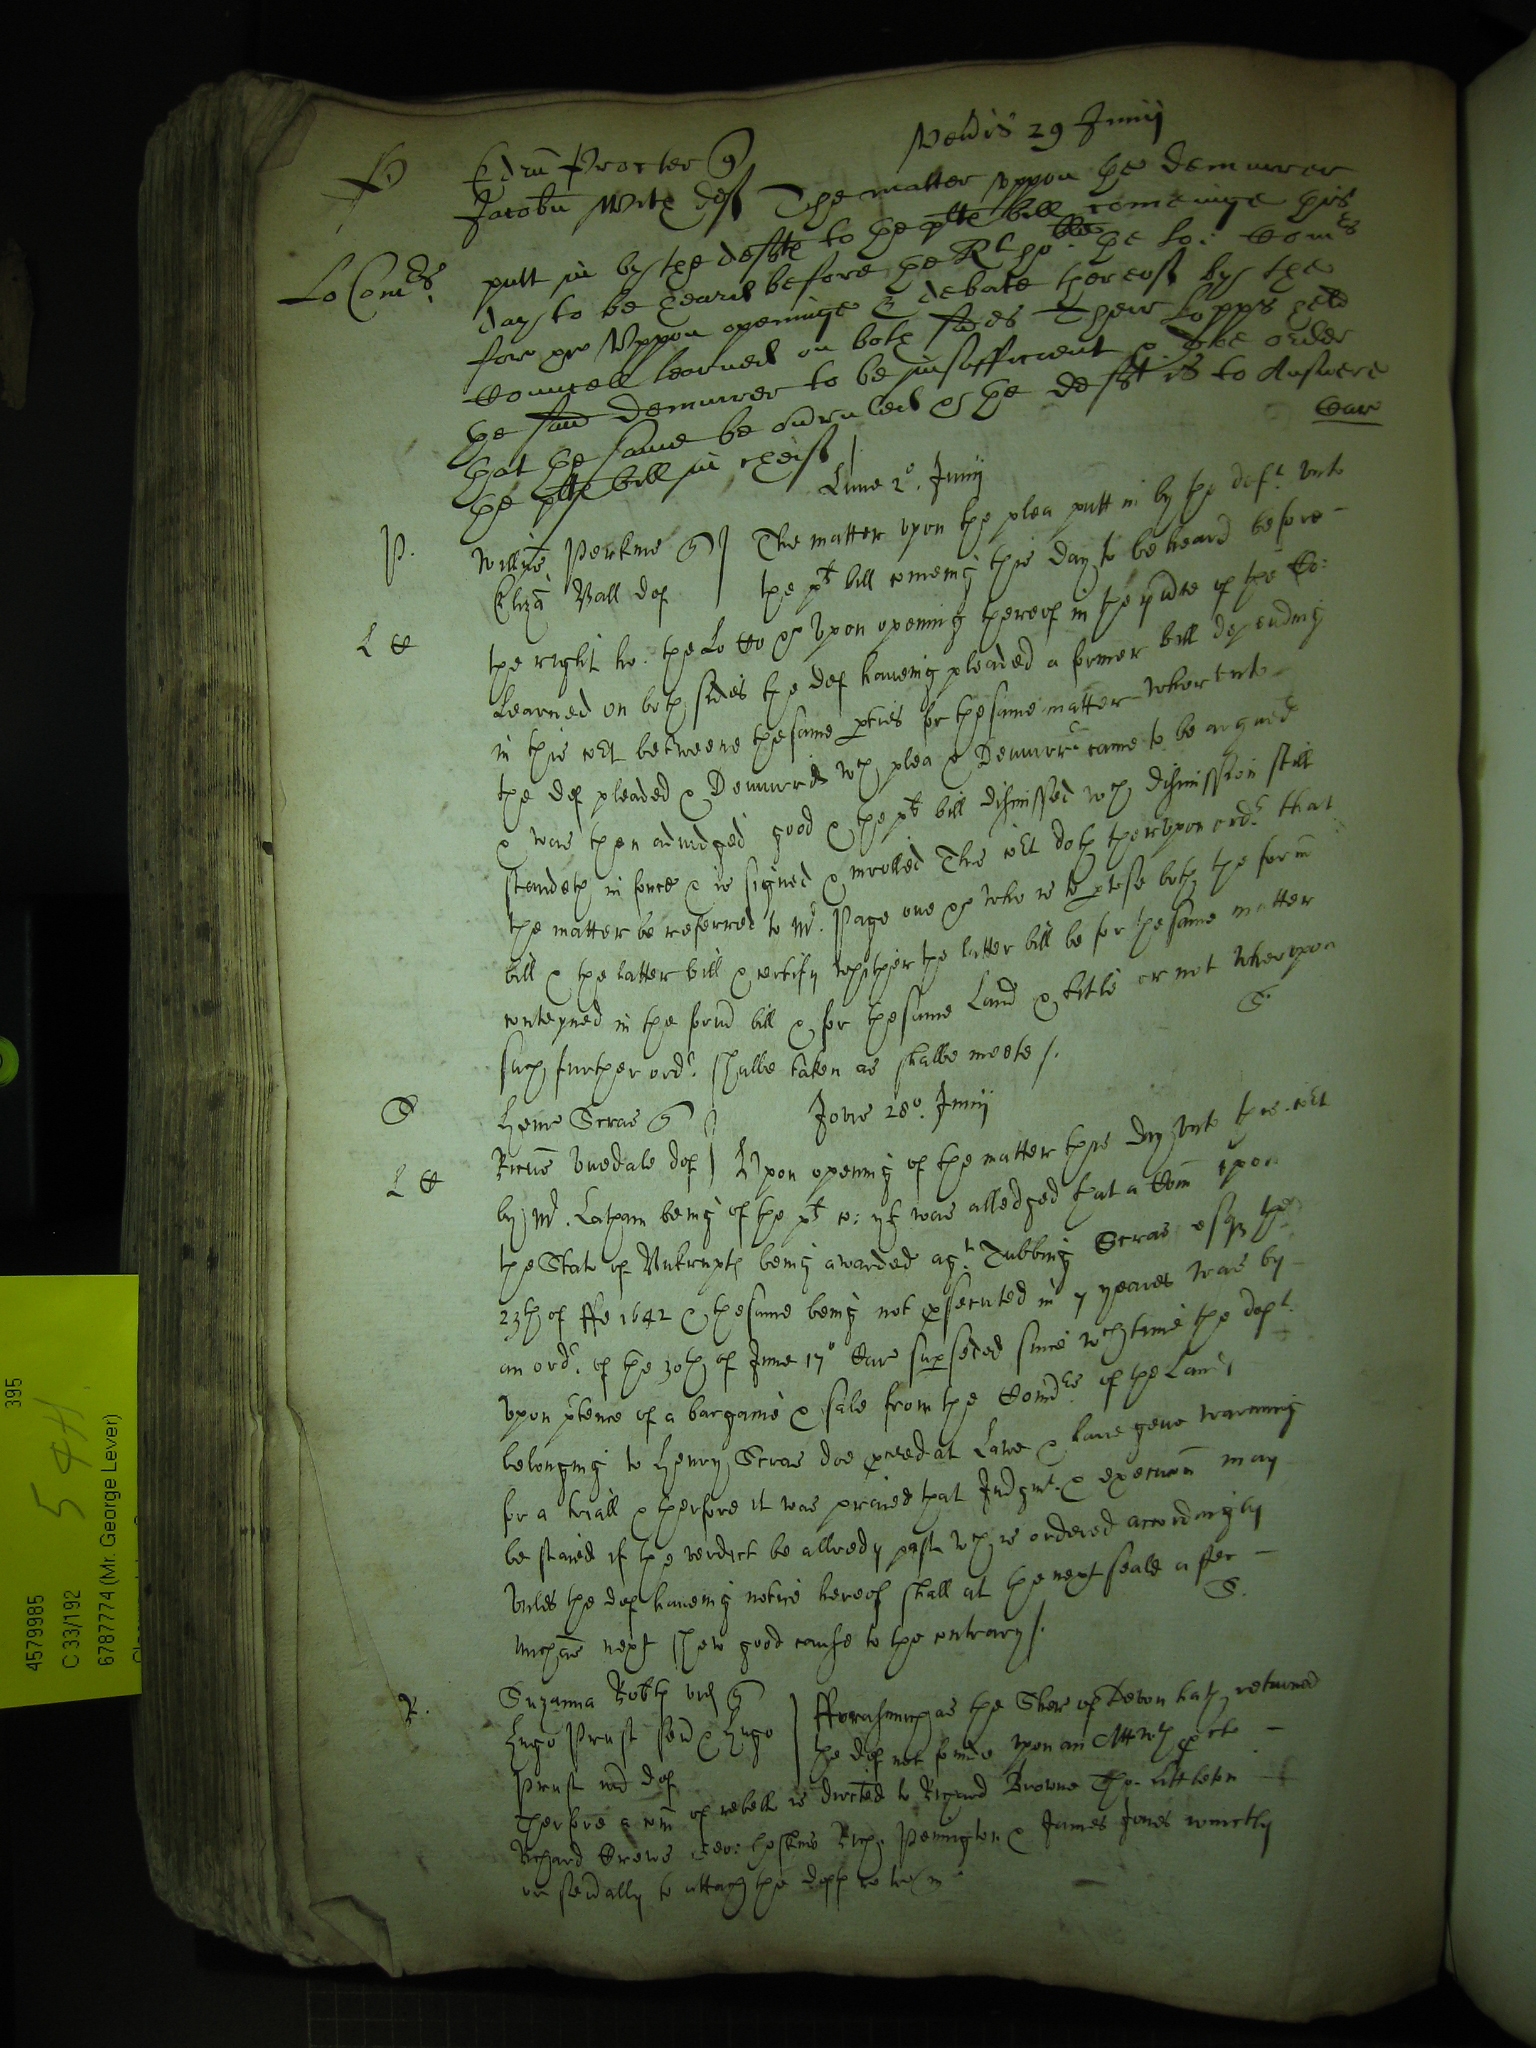 Vendis 29 Junij
P Edru Procter q
Jacobu Wite def The matter uppon the demurrer
Lo Comrs putt in by the defte to the plte bill comeinge this
day to be heard before the Rt ho:ble the Lo: Comrs
for gr Uppon openinge & debate thereof by the
Councell learned on both sides Their Lopps held
the said demurrer to be insufficient & doe order
that the same be overruled & the deft is to Answere
the plte bill in cheif / Ear
Lune 2o. Junij
P. Willm Perkins q The matter upon the plea putt in by the deft. unto
Eliza Vall def the plt bill comeing this day to be heard before
L C the right ho: the Lo Co &c Upon opening thereof in the p̱sence of the Co:
Learned on both sides the def haveing pleaded a former bill depending
in this Cort betweene the same p̱ties for the same matter wherunto
the def pleaded & Demurrd wch plea & Demurrr came to be argued
& was then adiudged good & the plt bill dismissed wch dismission still
standeth in force & is signed & inrolled This Cort doth therupon ordr that
the matter be referred to Mr. Page one &c who is to p̱use both the form
bill & the latter bill & certify whither the latter bill be for the same matter
conteyned in the formr bill & for the same Land & title or not wherupon
such further ordr. shalbe taken as shalbe meete /. S
S Henr Scras q Jovis 28o. Junij
Ricus Uvedale def Upon opening of the matter this day unto this Cort
L C by Mr. Latham being of the plt co: yt was alledged that a Com upon
the Statu of Bankrupts being awarded agt. Tubbing Scras esqr the
23th of ffe 1642 & the same being not p̱secuted in 7 yeares was by
an ordr. of the 30th of June 17o Car sup̱seded since wch time the deft.
upon p̱tence of a bargaine & sale from the Comrs of the Land
belonging to Henry Scras doe p̱ceed at Lawe & have geven warning
for a triall & therfore it was praied that Judgmt. & execucon may
be staied if the verdict be allredy past wch is ordered accordingly
unles the def haveing notice hereof shall at the next seale after
Michas next shew good cause to the contrary /. S.
R. Suzanna Robth vid q fforasmuch as the Sher of Devon hath returned
Hugo Prust sen & Hugo the def not founde upon an Att wth p̱cl̃
Prust iun def
therfore a com of rebell is directed to Richard Browne Tho. Littleton
Richard Crewe Geo: Hoskins Rich Penington & James Jones ioinctly
or sevally to attach the deff
395
54H
4579985
C 33/192
6787774 (Mr. George Lever)